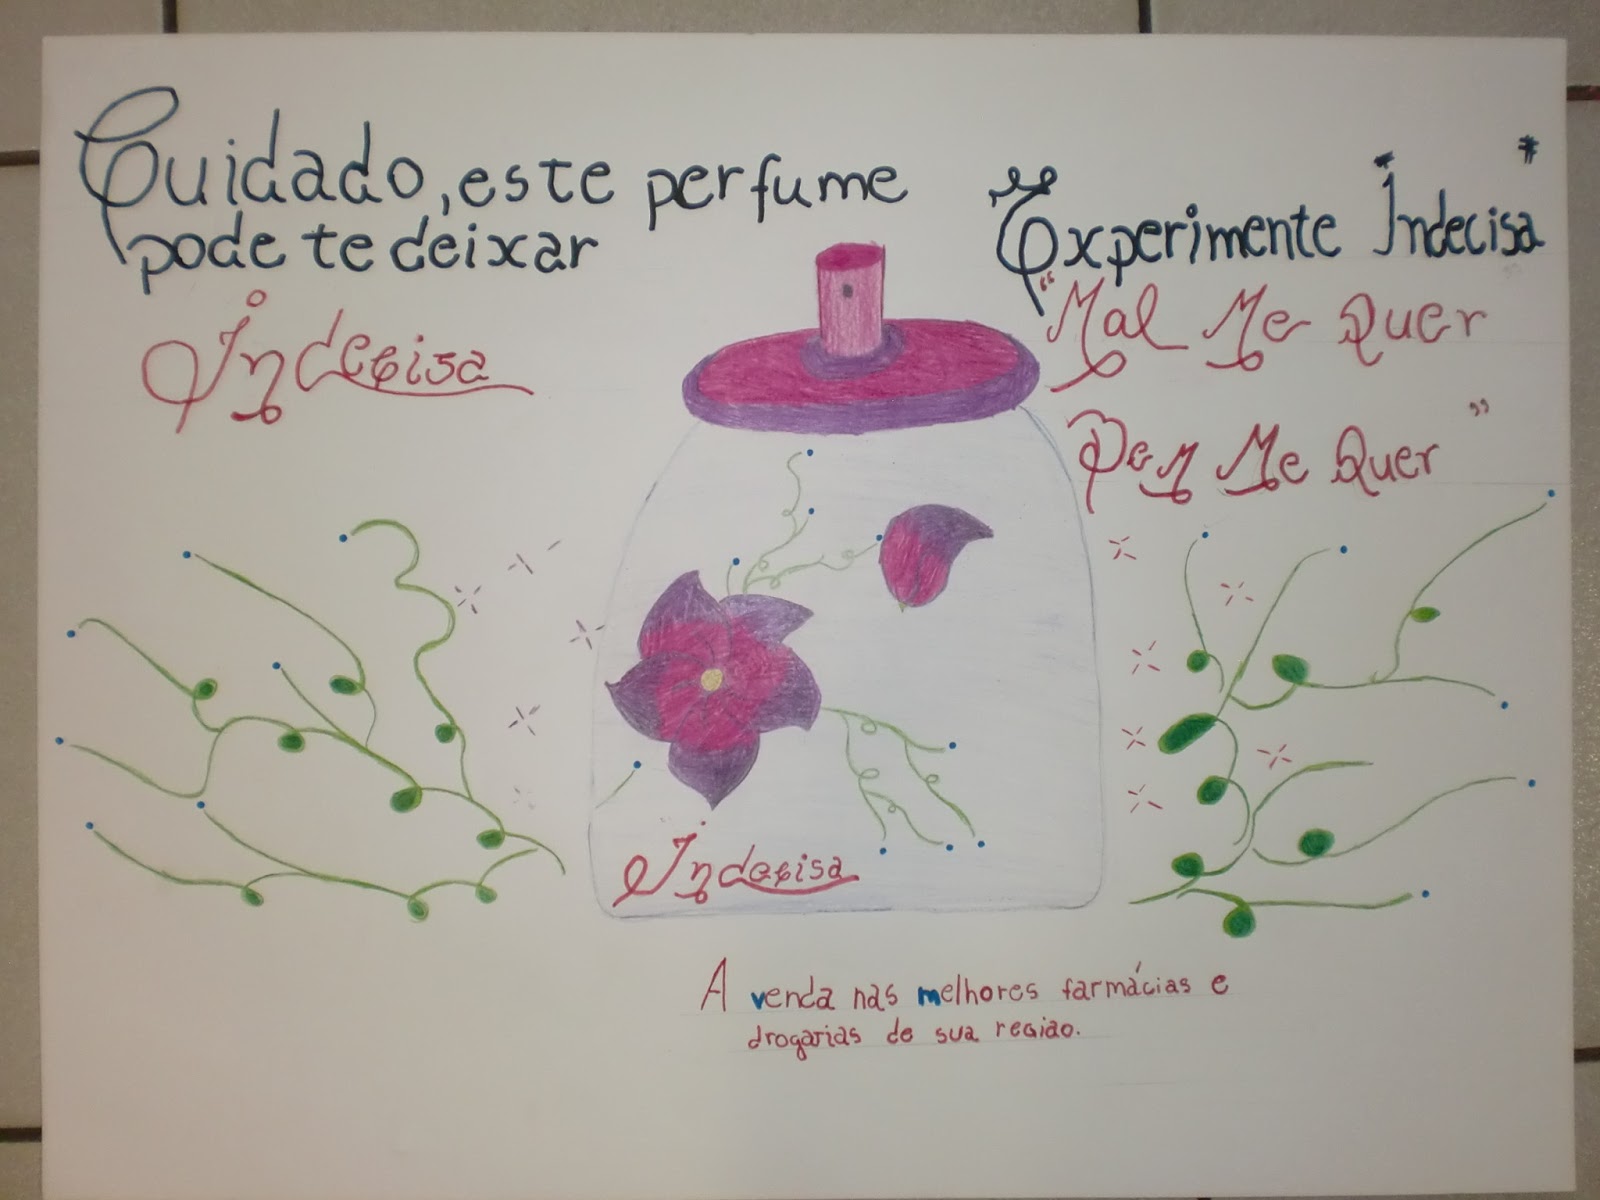 Cuidado, este perfume
pode te deixar
Indecisa
Experimente Indecisa
"Mal Me Quer
Bem Me Quer"
Indecisa
A venda nas melhores farmácias e
drogarias de sua regiao.